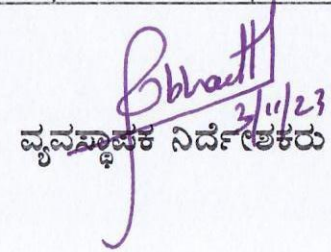 3/11/23
ವ್ಯವಸ್ಥಾಪಕ ನಿರ್ದೇಶಕರು